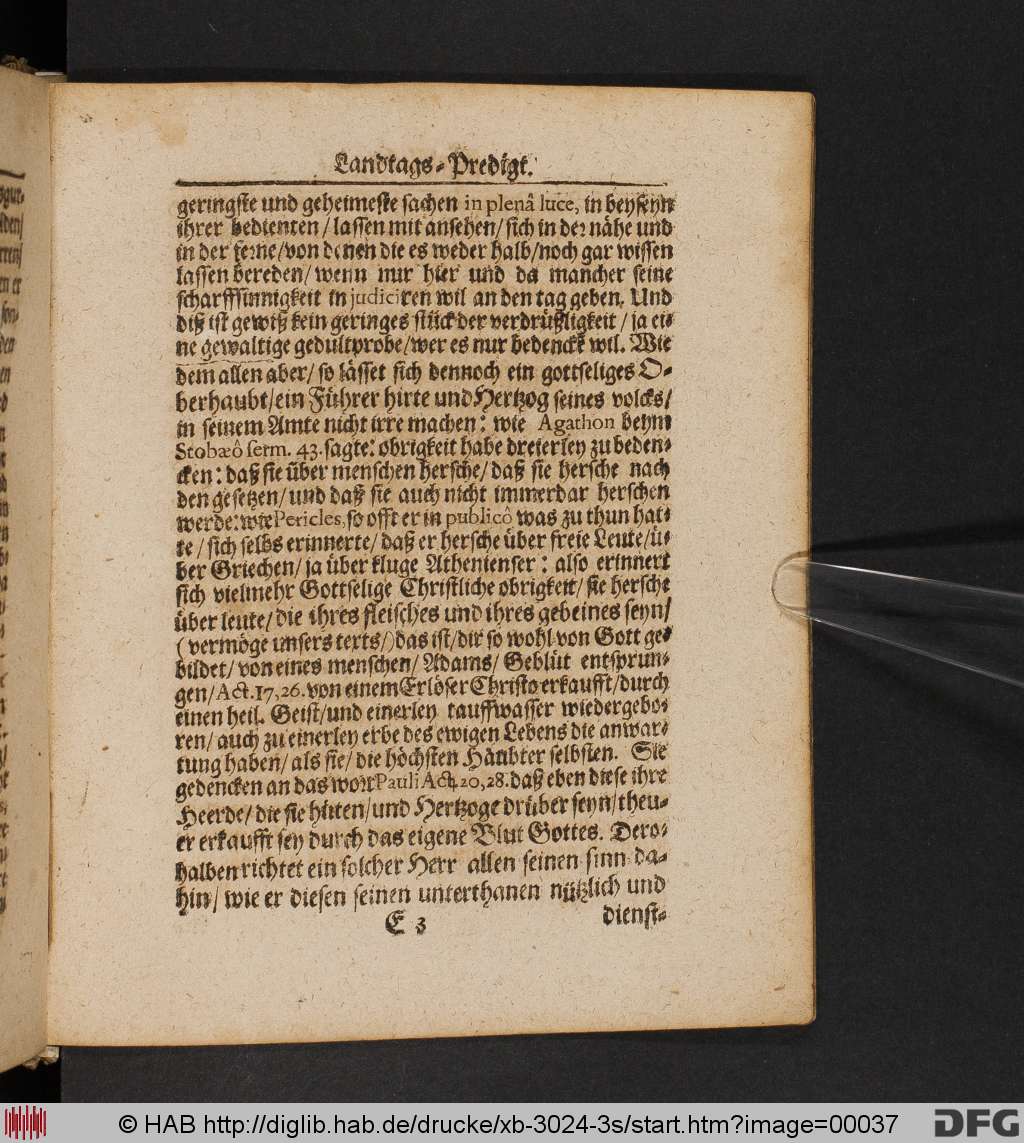 Landtags-Predigt.
geringste und geheimeste sachen in plenâ luce, in beyseyn
ihrer bedienten/ lassen mit ansehen/ sich in der nähe und
in der ferne/ von denen die es weder halb/ noch gar wissen
lassen bereden/ wenn nur hier und da mancher seine
scharffsinnigkeit in judiciren wil an den tag geben. Und
diß ist gewiß kein geringes stück der verdrüßligkeit/ ja ei-
ne gewaltige gedultprobe/ wer es nur bedenckt wil. Wie
dem allen aber/ so lässet sich dennoch ein gottseliges O-
berhaubt/ ein Führer hirte und Hertzog seines volcks/
in seinem Amte nicht irre machen: wie Agathon beym
Stobæô serm. 43. sagte: obrigkeit habe dreierley zu beden-
cken: daß sie über menschen hersche/ daß sie hersche nach
den gesetzen/ und daß sie auch nicht immerdar herschen
werde: wie Pericles, so offt er in publicô was zu thun hat-
te/ sich selbs erinnerte/ daß er hersche über freie Leute/ ü-
ber Griechen/ ja über kluge Athenienser: also erinnert
sich vielmehr Gottselige Christliche obrigkeit/ sie hersche
über leute/ die ihres fleisches und ihres gebeines seyn/
(vermöge unsers texts/) das ist/ die so wohl von Gott ge-
bildet/ von eines menschen/ Adams/ Geblüt entsprun-
gen/ Act. 17, 26. von einem Erlöser Christo erkaufft/ durch
einen heil. Geist/ und einerley tauffwasser wiedergebo-
ren/ auch zu einerley erbe des ewigen Lebens die anwar-
tung haben/ als sie/ die höchsten Häubter selbsten. Sie
gedencken an das wort Pauli Act. 20, 28. daß eben diese ihre
Heerde/ die sie hüten/ und Hertzoge drüber seyn/ theu-
er erkaufft sey durch das eigene Blut Gottes. Dero-
halben richtet ein solcher Herr allen seinen sinn da-
hin/ wie er diesen seinen unterthanen nützlich und
E 3 dienst-
© HAB http://diglib.hab.de/drucke/xb-3024-3s/start.htm?image=00037
DFG